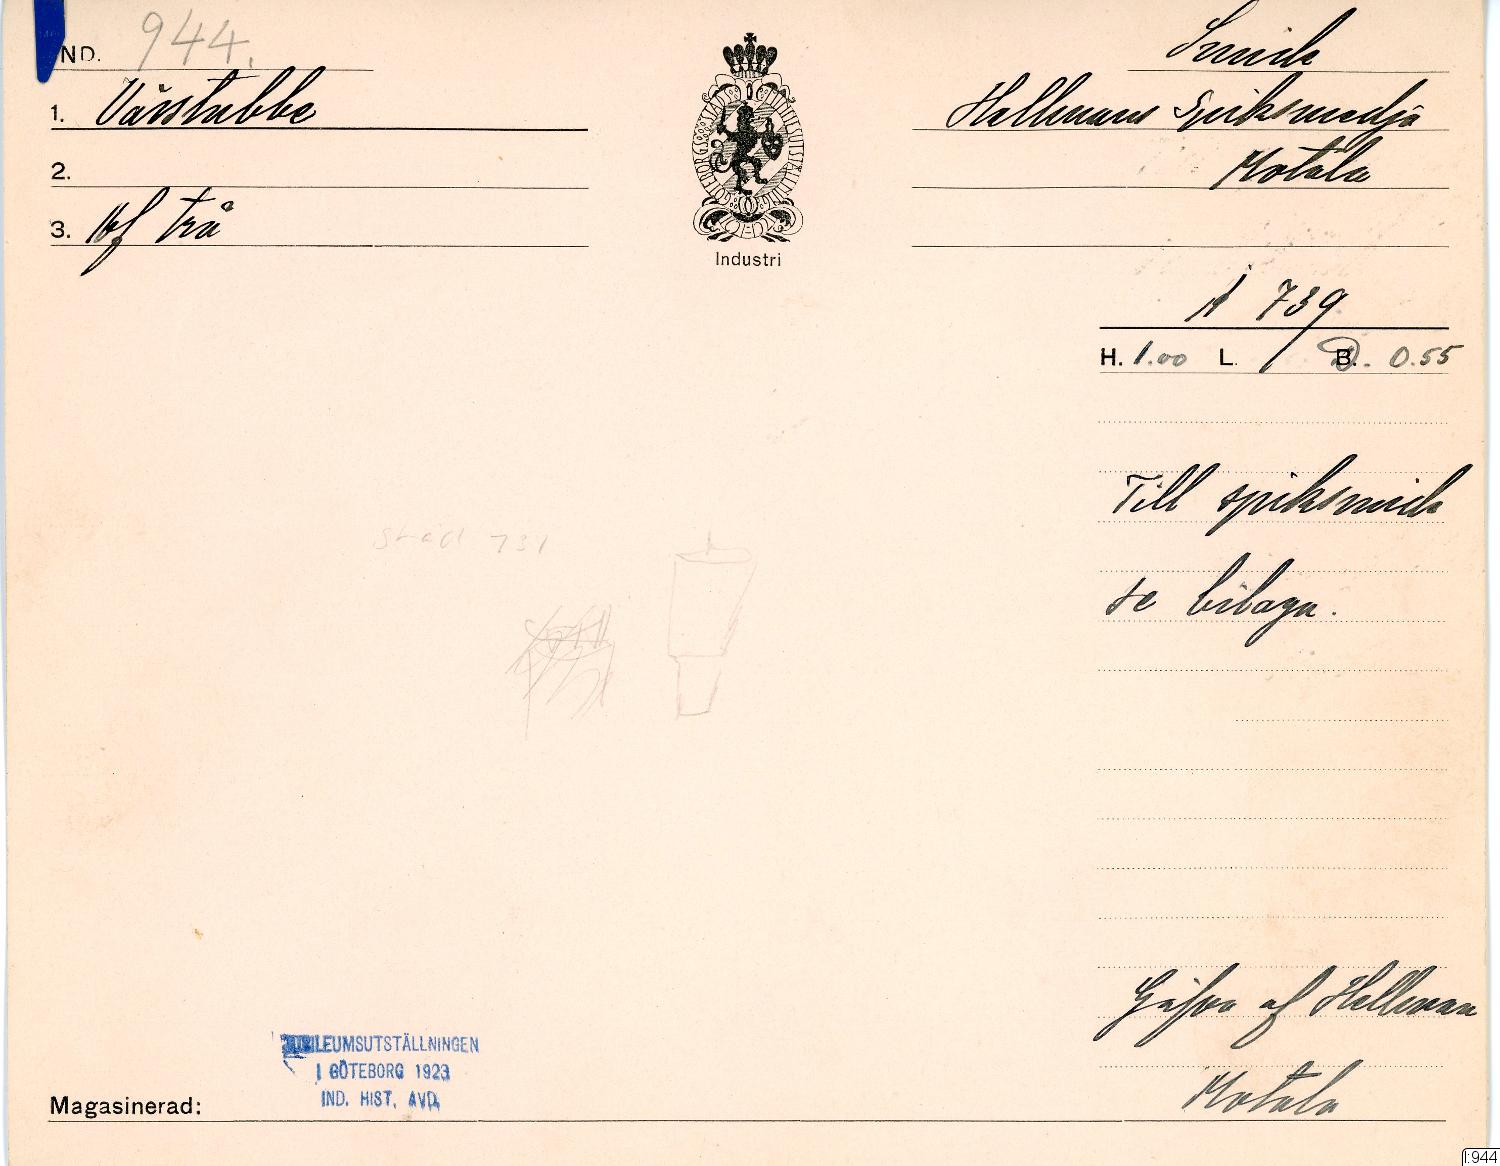 IND. 944.
Smide
1. Vässtubbe
Hellmans Spiksmedja
2.
Motala
3. Af trä
GÖTEBORGS STADS JUBILEUMSUTSTÄLLNING
Industri
A 739
H. 1.00 L. / D. 0.55
Till spiksmide
se bilaga.
städ 731
Gåfva af Hellman
Motala
JUBILEUMSUTSTÄLLNINGEN
I GÖTEBORG 1923
IND. HIST. AVD.
Magasinerad:
I:944